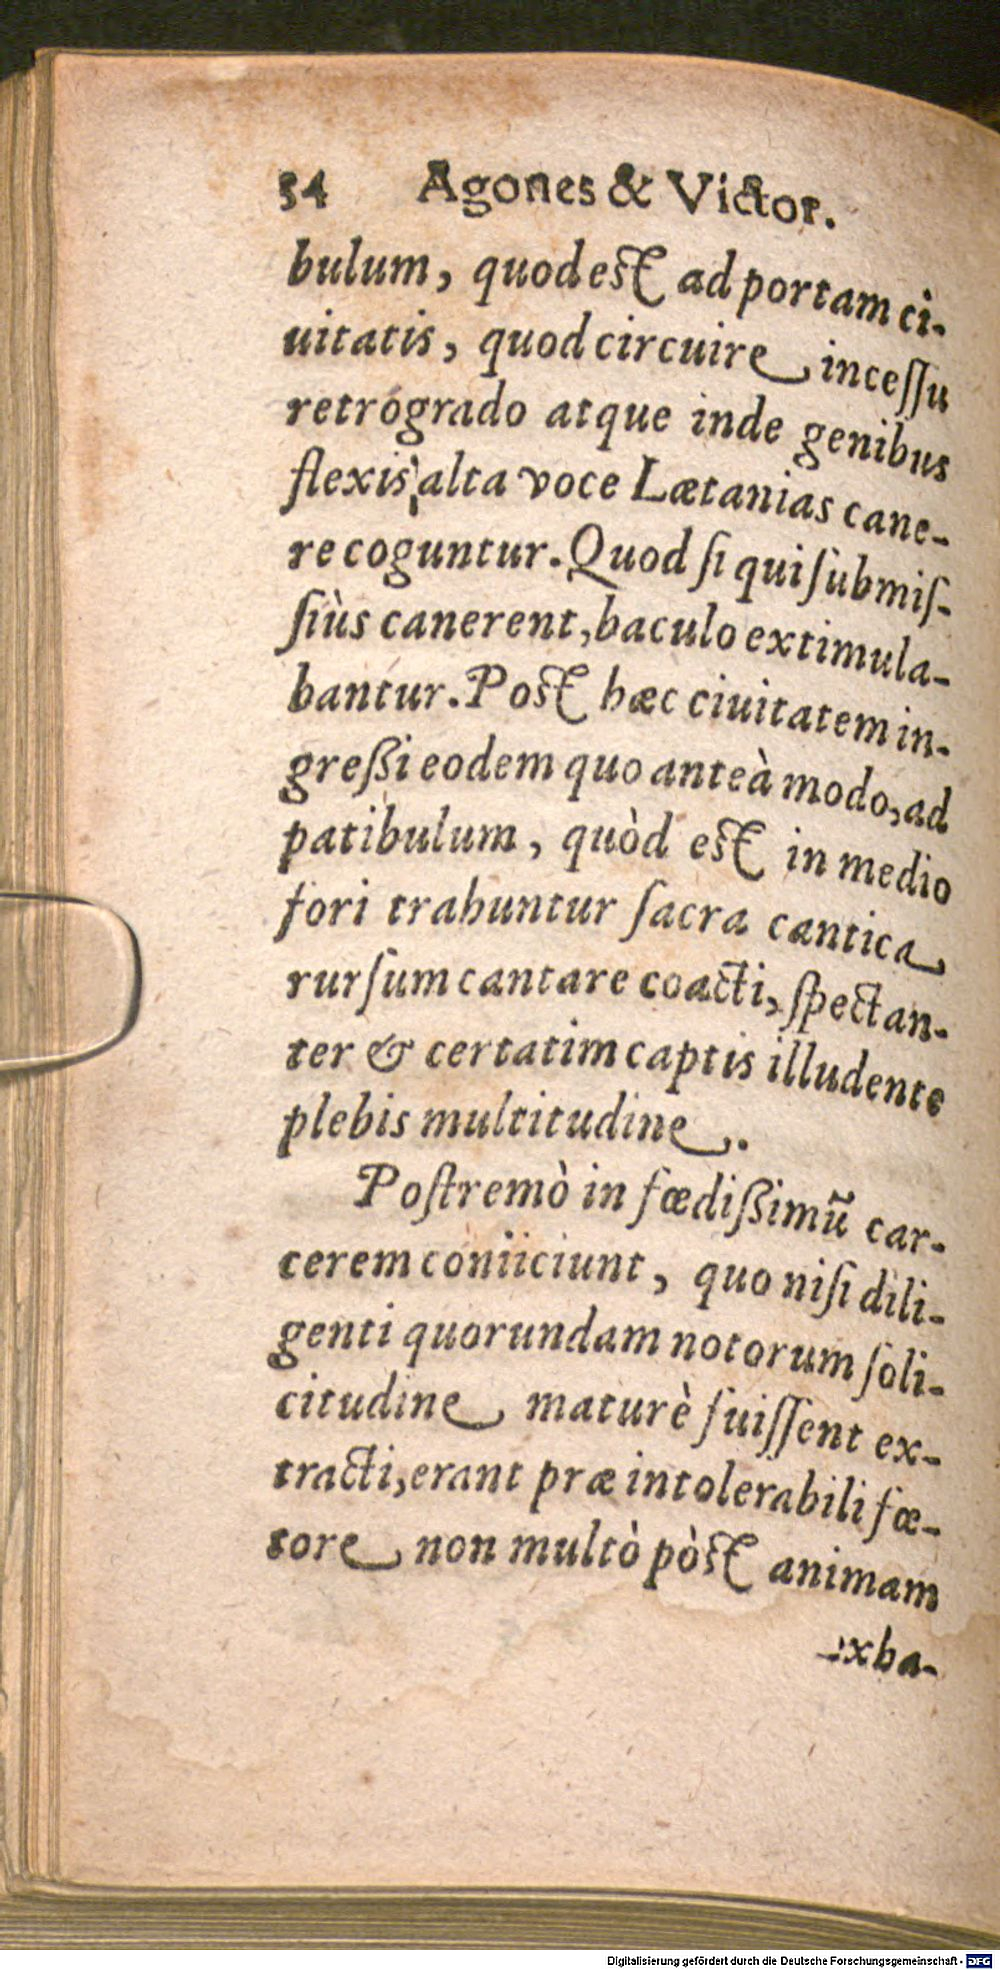 54 Agones & Victor.
bulum, quod est ad portam ci-
uitatis, quod circuire inceſſu
retrógrado atque inde genibus
flexis, alta voce Lætanias cane-
re coguntur. Quod ſi qui ſubmiſ-
ſiùs canerent, baculo extimula-
bantur. Post hæc ciuitatem in-
greßi eodem quo anteà modo, ad
patibulum, quòd est in medio
fori trahuntur ſacra cantica
rurſum cantare coacti, ſpectan-
ter & certatim captis illudente
plebis multitudine.
Poſtremò in fœdißimũ car-
cerem coniiciunt, quo niſi dili-
genti quorundam notorum ſoli-
citudine maturè fuiſſent ex-
tracti, erant præ intolerabili fœ-
tore non multò pòst animam
exha-
Digitalisierung gefördert durch die Deutsche Forschungsgemeinschaft - DFG